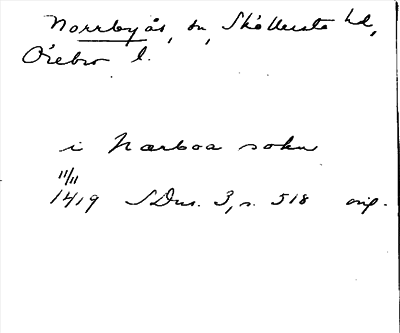 Norrbyås, sn, Sköllersta hd,
Örebro l.
i Narboa sokn
11/11
1419 SDns. 3, s. 518 orig.